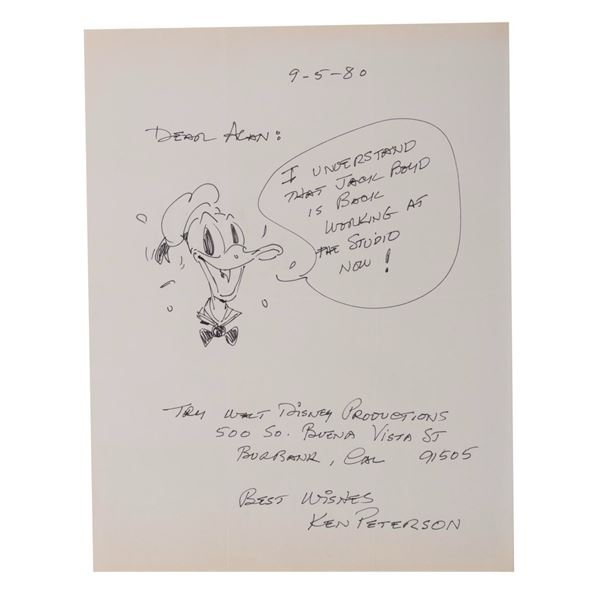 9-5-80
DEAR ALAN:
I UNDERSTAND
THAT JACK BOYD
IS BACK
WORKING AT
THE STUDIO
NOW!
TRY WALT DISNEY PRODUCTIONS
500 SO. BUENA VISTA ST
BURBANK, CAL 91505
BEST WISHES
KEN PETERSON